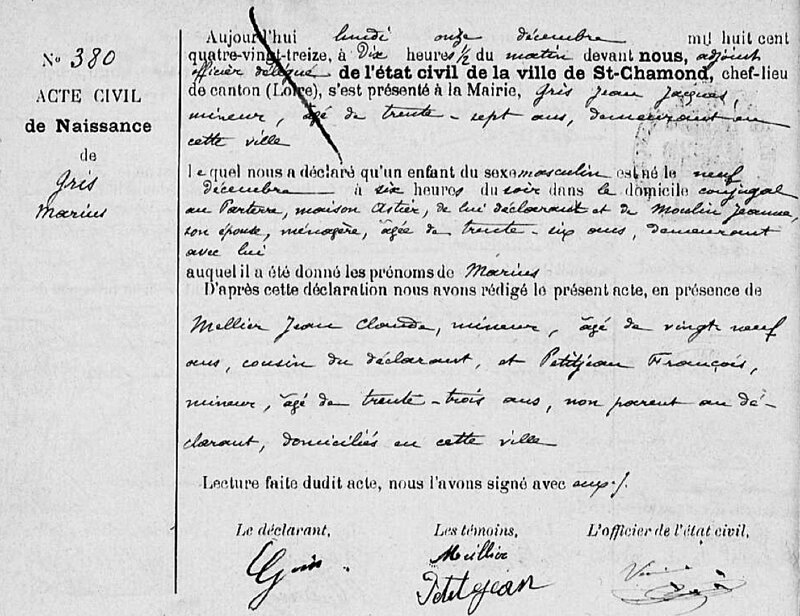 N° 380
ACTE CIVIL
de Naissance
de
Gris
Marius
Aujourd'hui lundi onze décembre mil huit cent
quatre-vingt-treize, à Dix heures ½ du matin devant nous, adjoint
officier délégué de l'état civil de la ville de St-Chamond, chef-lieu
de canton (Loire), s'est présenté à la Mairie, Gris Jean Jacques,
mineur, âgé de trente-sept ans, demeurant en
cette ville
lequel nous a déclaré qu'un enfant du sexe masculin est né le neuf
décembre à six heures du soir dans le domicile conjugal
au Parterre, maison Astier, de lui déclarant et de Moulin Jeanne,
son épouse, ménagère, âgée de trente-six ans, demeurant
avec lui
auquel il a été donné les prénoms de Marius
D'après cette déclaration nous avons rédigé le présent acte, en présence de
Mellier Jean Claude, mineur, âgé de vingt neuf
ans, cousin du déclarant, et Petitjean François,
mineur, âgé de trente-trois ans, non parent au dé-
clarant, domiciliés en cette ville
Lecture faite dudit acte, nous l'avons signé avec eux./.
Le déclarant, Les témoins, L'officier de l'état civil,
Gris Meillier
Petitjean